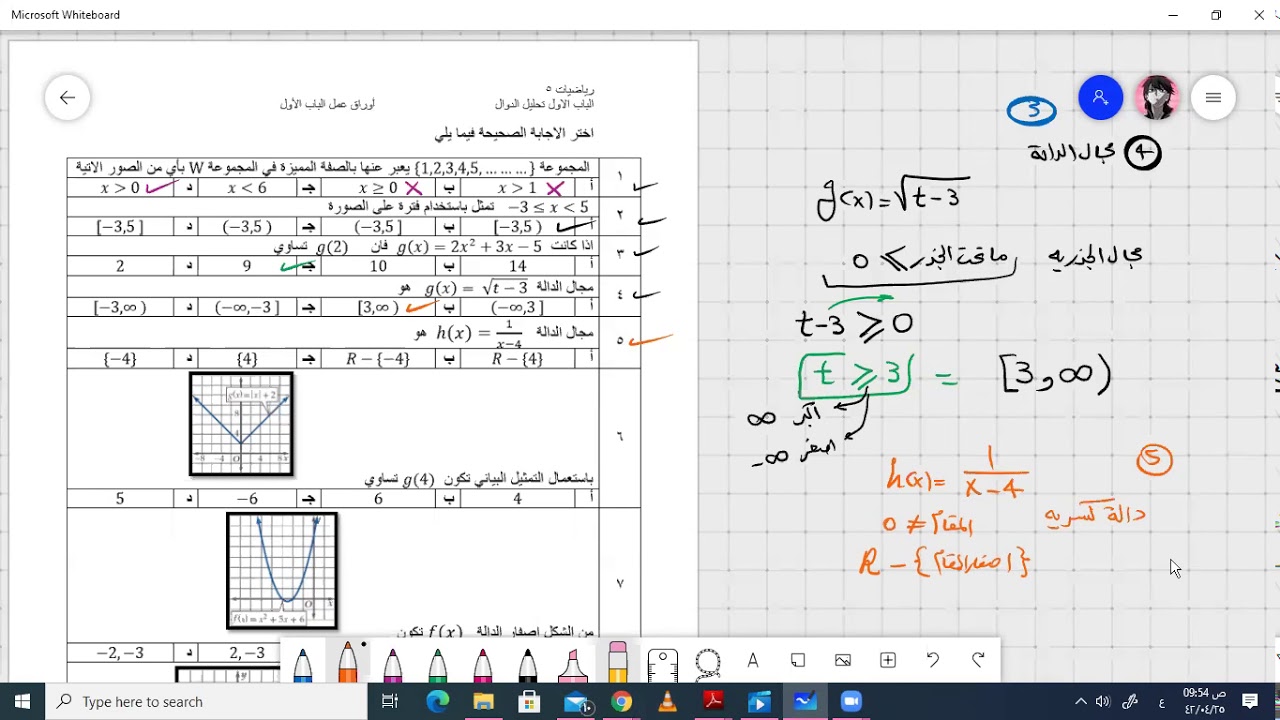 Microsoft Whiteboard
رياضيات ٥
الباب الاول تحليل الدوال
أوراق عمل الباب الأول
اختر الاجابة الصحيحة فيما يلي
١ المجموعة {1,2,3,4,5, … … …} يعبر عنها بالصفة المميزة في المجموعة W بأي من الصور الاتية
أ x > 1 ب x ≥ 0 جـ x < 6 د x > 0
٢ −3 ≤ x < 5 تمثل باستخدام فترة على الصورة
أ [−3,5 ) ب (−3,5 ] جـ (−3,5 ) د [−3,5 ]
٣ إذا كانت g(x) = 2x² + 3x − 5 فان g(2) تساوي
أ 14 ب 10 جـ 9 د 2
٤ مجال الدالة g(x) = √t − 3 هو
أ (−∞,3 ] ب [3,∞ ) جـ (−∞,−3 ] د [−3,∞ )
٥ مجال الدالة h(x) = 1/(x−4) هو
أ R − {4} ب R − {−4} جـ {4} د {−4}
g(x) = |x| + 2
−8 −4 O 4 8 x
٦
باستعمال التمثيل البياني تكون g(4) تساوي
أ 4 ب 6 جـ −6 د 5
٧
O x
f(x) = x² + 5x + 6
من الشكل اصفار الدالة f(x) تكون
2,−3 د −2,−3
y
3
4 مجال الدالة
g(x) = √t−3
مجال الجذريه ما تحت الجذر ≥ 0
t−3 ≥ 0
t ≥ 3 = [3,∞)
اكبر ∞
اصغر −∞
5
h(x) = 1/(x−4)
دالة كسريه المقام ≠ 0
R − {اصفار المقام}
A
Type here to search
ع
09:54 ص
٤٢/٠٤/٢٥